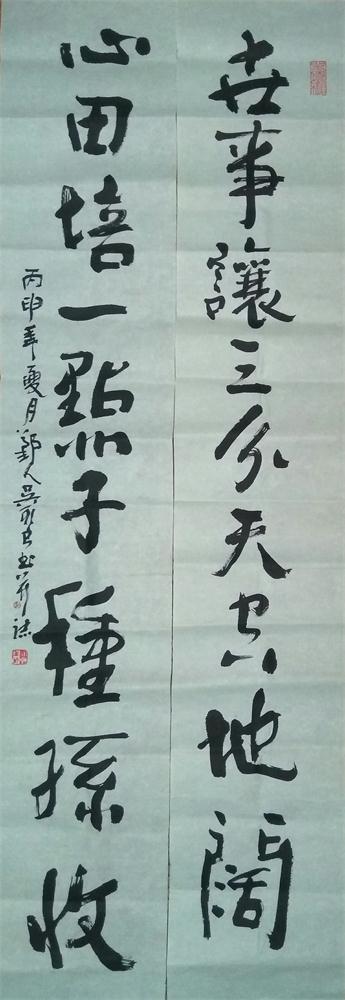 世事讓三分天空地闊
心田培一點子種孫收
丙申年夏月鄭人吳